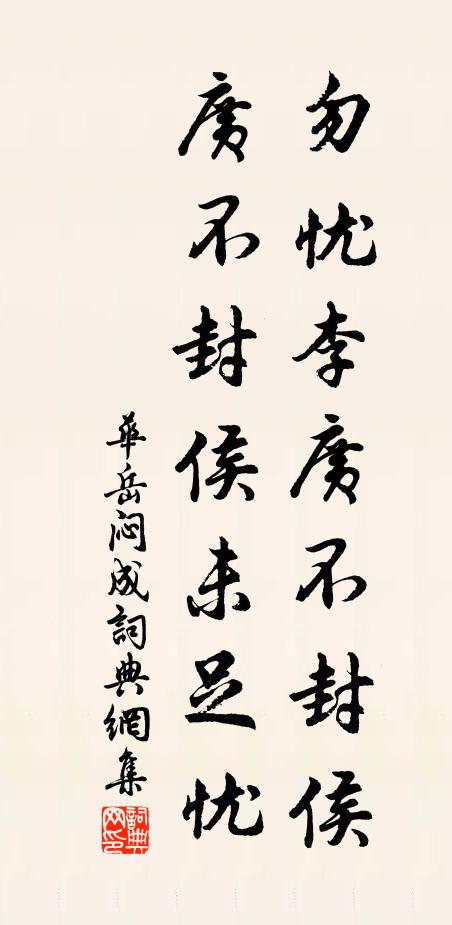 勿忧李廣不封侯
廣不封侯未足忧
華岳闷成詞典網集
詞典網印